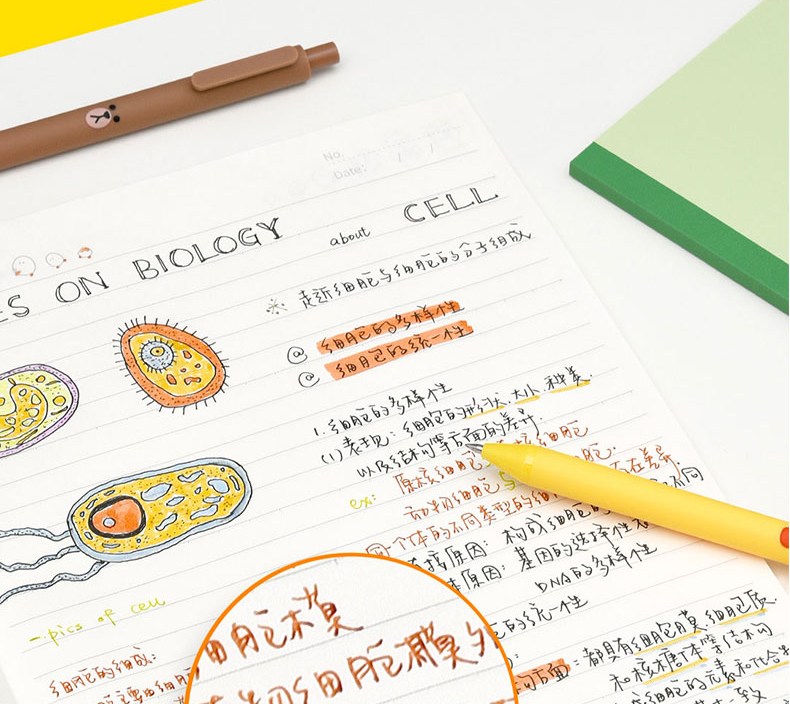 No.
Date:
ES ON BIOLOGY about CELL
走近细胞与细胞的分子组成
@ 细胞的多样性
@ 细胞的统一性
1. 细胞的多样性
(1) 表现：细胞的形状.大小.种类.
以及结构等方面的差异.
ex: 原核细胞 细胞
动物细胞与 胞.
同一个体的不同类型的细 存在差异
接原因：构成细胞的 不同
原因：基因的选择性表
DNA的多样性
的统一性
方面：都具有细胞膜.细胞质.
和核糖体等结构
细胞的元素和化合物
一致
- pics of cell
细胞的组成：
细胞膜
细胞膜外